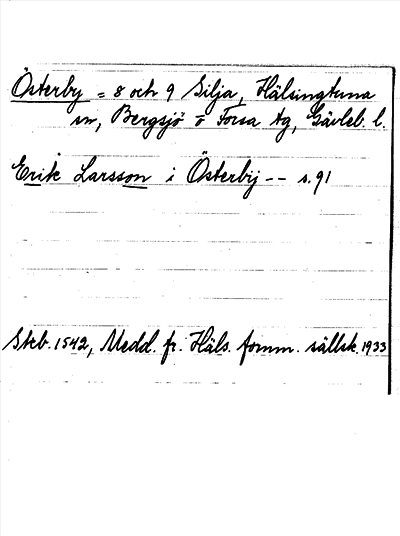 Österby = 8 och 9 Silja, Hälsingtuna
sn, Bergsjö o Forsa tg, Gävleb. l.
Erik Larsson i Österbij -- s. 91
Skb. 1542, Medd. fr. Häls. fornm. sällsk. 1933